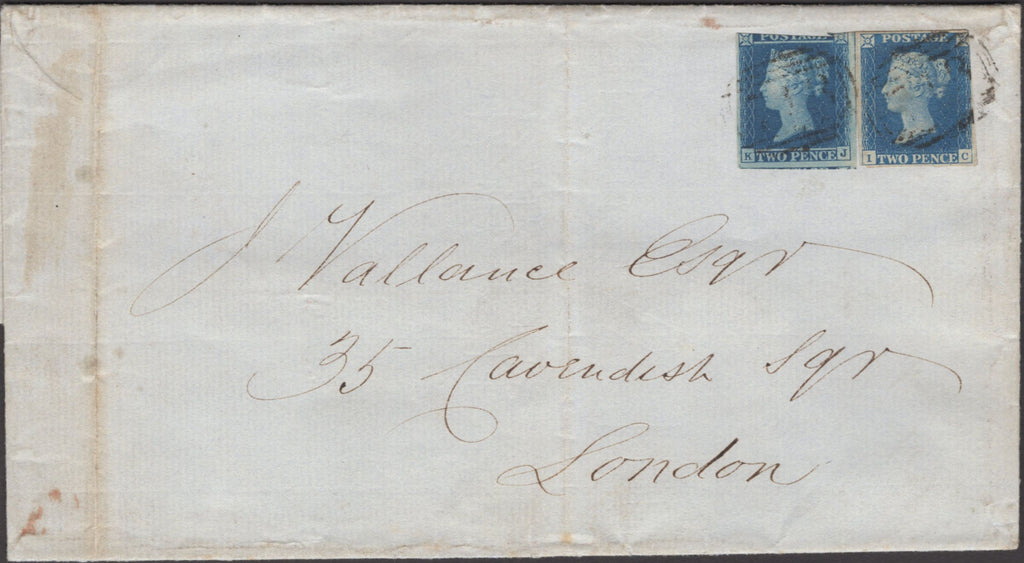 POSTAGE POSTAGE
K TWO PENCE J I TWO PENCE C
J Vallance Esqr
35 Cavendish Sqr
London